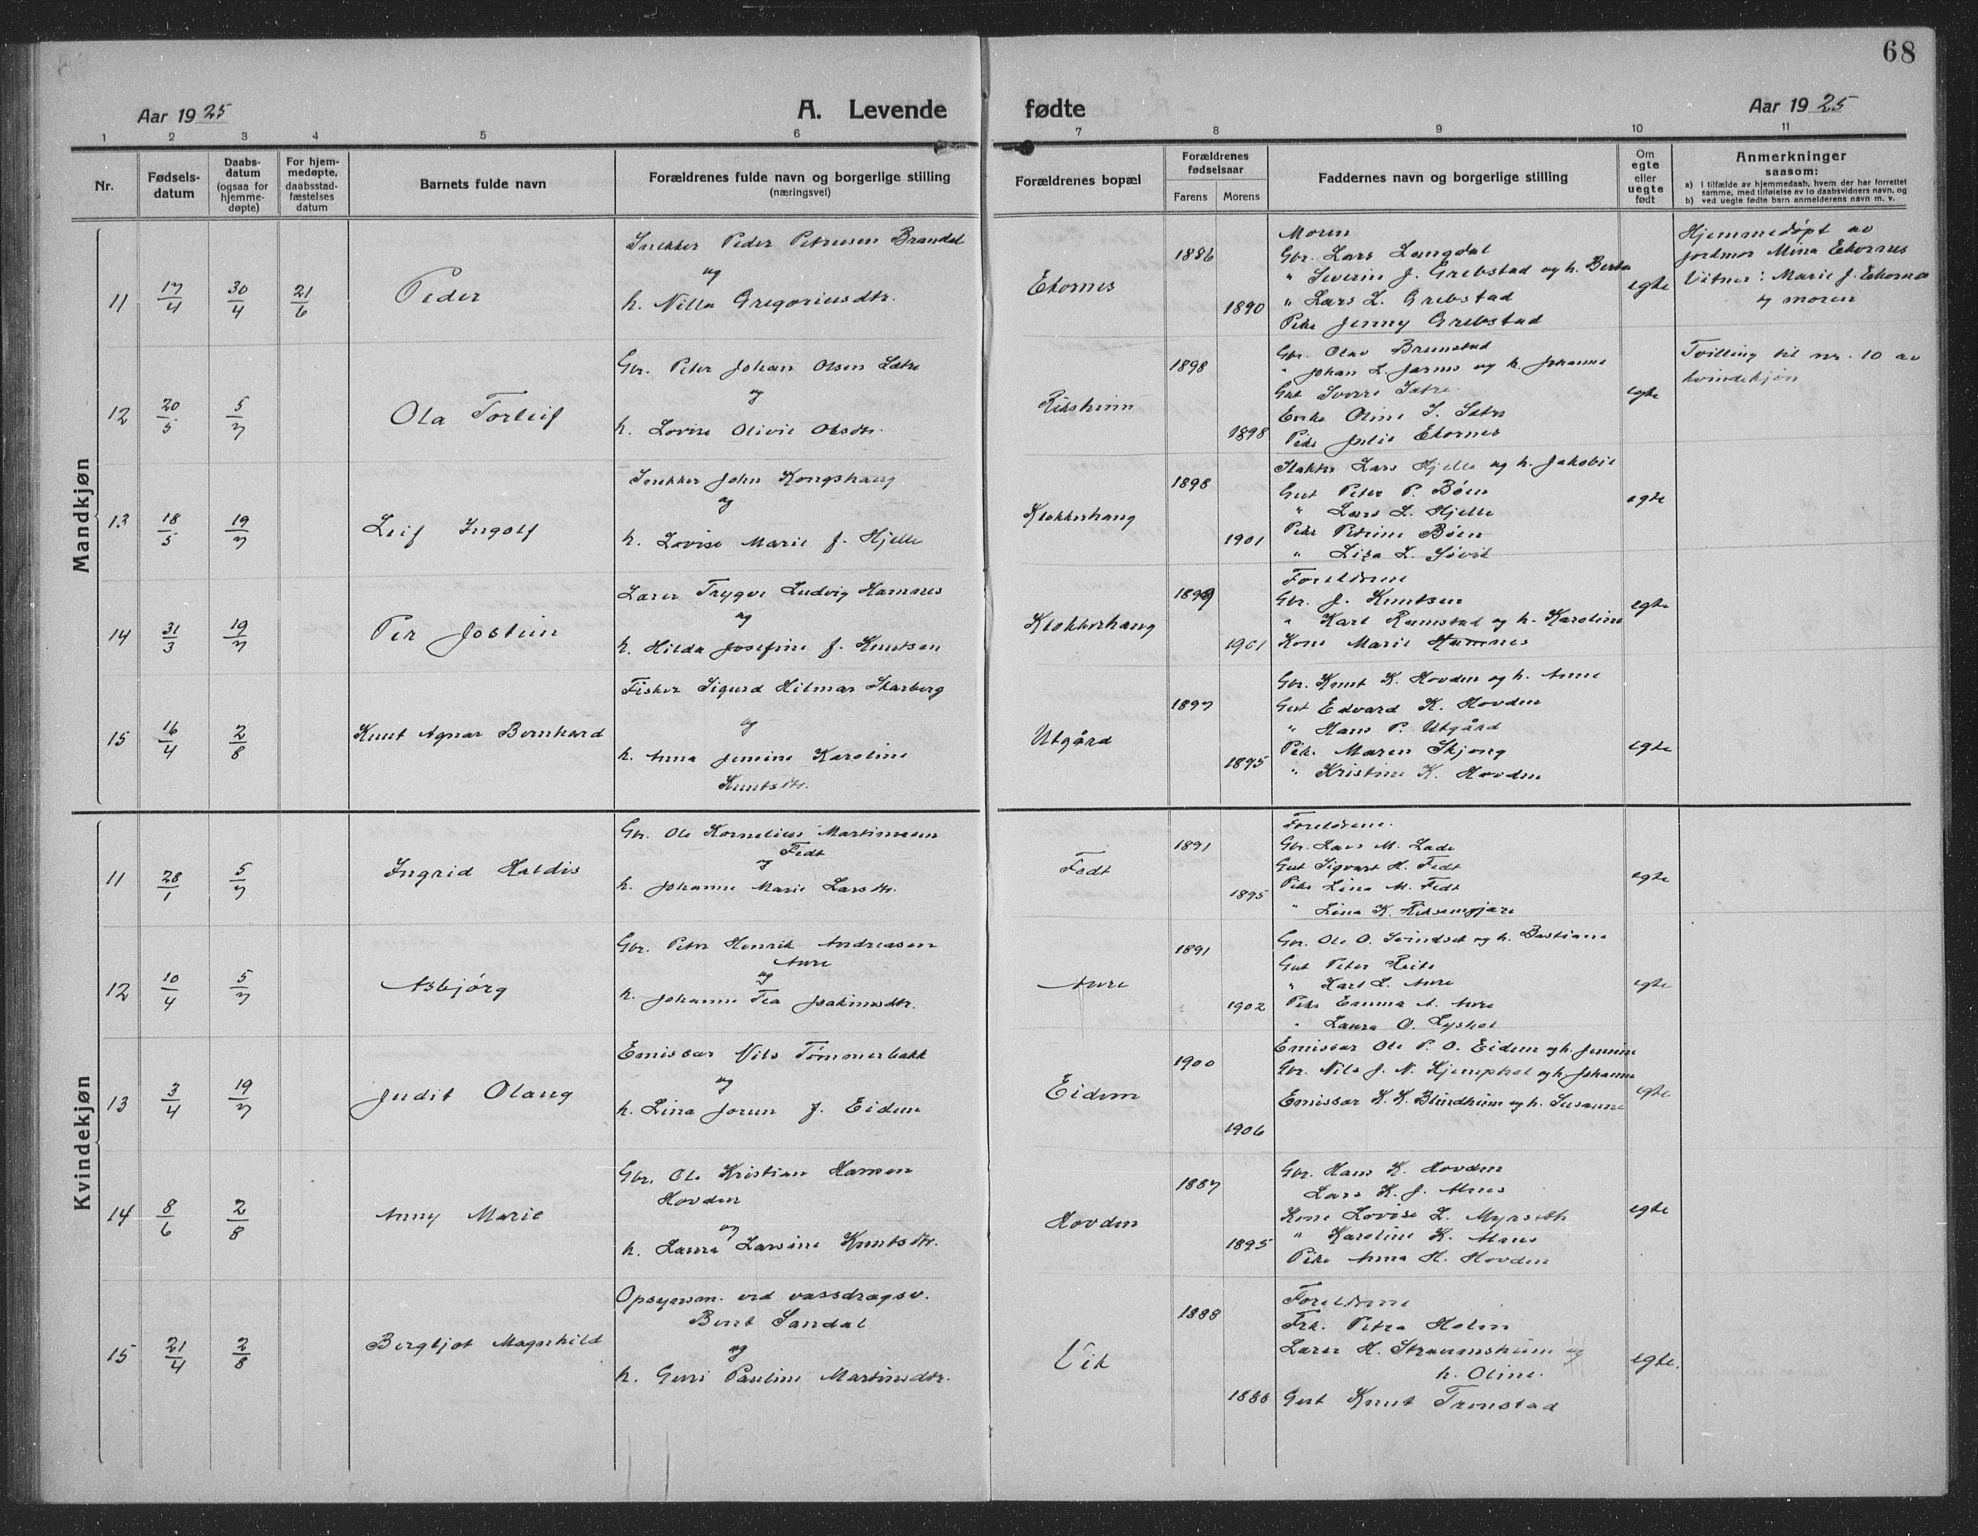 68
Aar 1925 A. Levende fødte Aar 1925
1 2 3 4 5 6 7 8 9 10 11
Nr.
Fødsels-
datum
Daabs-
datum
(ogsaa for
hjemme-
døpte)
For hjem-
medøpte,
daabsstad-
fæstelses
datum
Barnets fulde navn
Forældrenes fulde navn og borgerlige stilling
(næringsvei)
Forældrenes bopæl
Forældrenes
fødselsaar
Farens Morens
Faddernes navn og borgerlige stilling
Om
egte
eller
uegte
født
Anmerkninger
saasom:
a) I tilfælde av hjemmedaab, hvem der har forrettet
samme, med tilføielse av to daabsvidners navn, og
b) ved uegte fødte barn anmelderens navn m. v.
Mandkjøn
11 17/4 30/4 21/6 Peder
Snekker Peder Petersen Brandal
og
h. Nilla Gregoriusdtr.
Ekornes
1886
1890
Moren
Gbr. Lars Langdal
" Severin J. Grebstad og h. Berta
" Lars L. Grebstad
Pike Jenny Grebstad
egte
Hjemmedøpt av
jordmor Mina Ekornes
Vitner: Marie J. Ekornes
og moren
12 20/5 5/7 Ola Torleif
Gbr. Peter Johan Olsen Sætre
og
h. Lovise Olivie Olsdtr.
Riksheim
1898
1898
Gbr. Olav Brunstad
" Johan L. Jarnes og h. Johanne
Gut Sverre Sætre
Enke Oline I. Sætre
Pike Julie Ekornes
egte
Tvilling til nr. 10 av
kvindekjøn
13 18/5 19/7 Leif Ingolf
Snekker John Kongshaug
og
h. Lovise Marie f. Hjelle
Klokkerhaug
1898
1901
Lars Hjelle og h. Jakobie
Gut Peter P. Bøen
" Lars L. Hjelle
Pike Petrine Bøen
" Lisa L. Søvik
egte
14 31/3 19/7 Per Jostein
Lærer Trygve Ludvig Hamnes
og
h. Hilda Josefine f. Knutsen
Klokkerhaug
1899
1901
Foreldrene
Gbr. J. Knutsen
" Karl Ramstad og h. Karoline
Kone Marie Hamnes
egte
15 16/4 2/8 Knut Agnar Bernhard
Fisker Sigurd Hilmar Skarberg
og
h. Anna Jensine Karoline
Knutsdtr.
Utgård
1897
1895
Gbr. Knut K. Hovden og h. Anne
Gut Edvard K. Hovden
" Hans P. Utgård
Pike Maren Skjong
" Kristine K. Hovden
egte
Kvindekjøn
11 28/1 5/7 Ingrid Heldis
Gbr. Ole Kornelius Martinussen
Fedt
og
h. Johanne Marie Larsdtr.
Fedt
1891
1895
Foreldrene.
Gbr. Lars M. Lade
Gut Sigvart H. Fedt
Pike Lina M. Fedt
" Lina K.
egte
12 10/4 5/7 Asbjørg
Gbr. Peter Henrik Andreassen
Aure
og
h. Johanne Tea Joakimsdtr.
Aure
1891
1902
Gbr. Ole O. Svindset og h. Bastiane
Gut Peter Reite
" Karl L. Aure
Pike Emma A. Aure
" Laura O. Lyshol
egte
13 3/4 19/7 Judit Olaug
Emissær Nils Tømmerbakk
og
h. Lina Jorun f. Eidem
Eidem
1900
1906
Emissær Ole P. O. Eidem og h. Jensine
Gbr. Nils J. N. Kjemphol og h. Johanne
Emissær K. K. Blindheim og h. Susanne
egte
14 8/6 2/8 Anny Marie
Gbr. Ole Kristian Hansen
Hovden
og
h. Laura Larsine Knutsdtr.
Hovden
1887
1895
Gbr. Hans K. Hovden
Lars K. J. Alnes
Kone Lovise L. Myrseth
" Karoline K. Alnes
Pike Anna H. Hovden
egte
15 21/4 2/8 Bergljot Magnhild
Opsynsm. ved vassdragsv.
Bent Sandal
og
h. Guri Pauline Martinsdtr.
Vik
1888
1888
Foreldrene
Frk. Petra Holm
Lærer H. Straumsheim og
h. Oline.
Gut Knut Tronstad
egte.